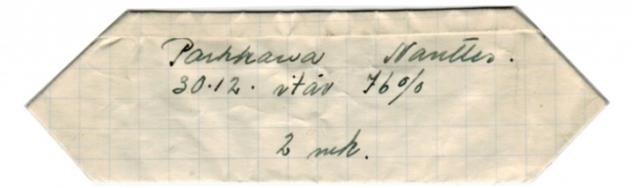 Parkkawa Nanttes.
30.12. itäv 76%
2 mk.